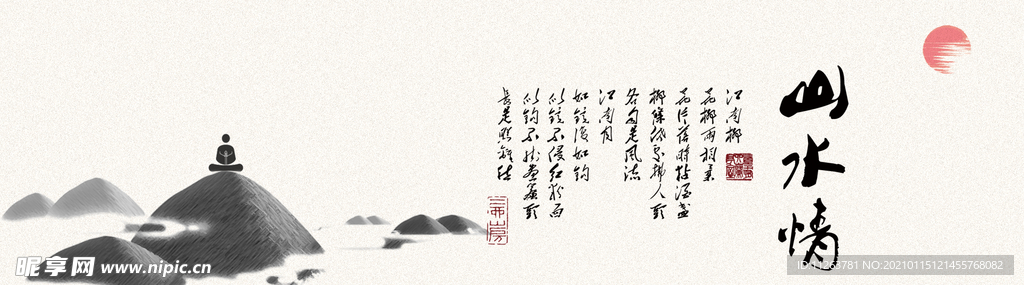 山水情
江南柳
花柳两相柔
花片落时黏酒盏
柳条低处拂人头
各自是风流
江南月
如镜复如钩
似镜不侵红粉面
似钩不挂画帘头
长是照离愁
昵享网 www.nipic.cn
ID:11263781 NO:20210115121455768082